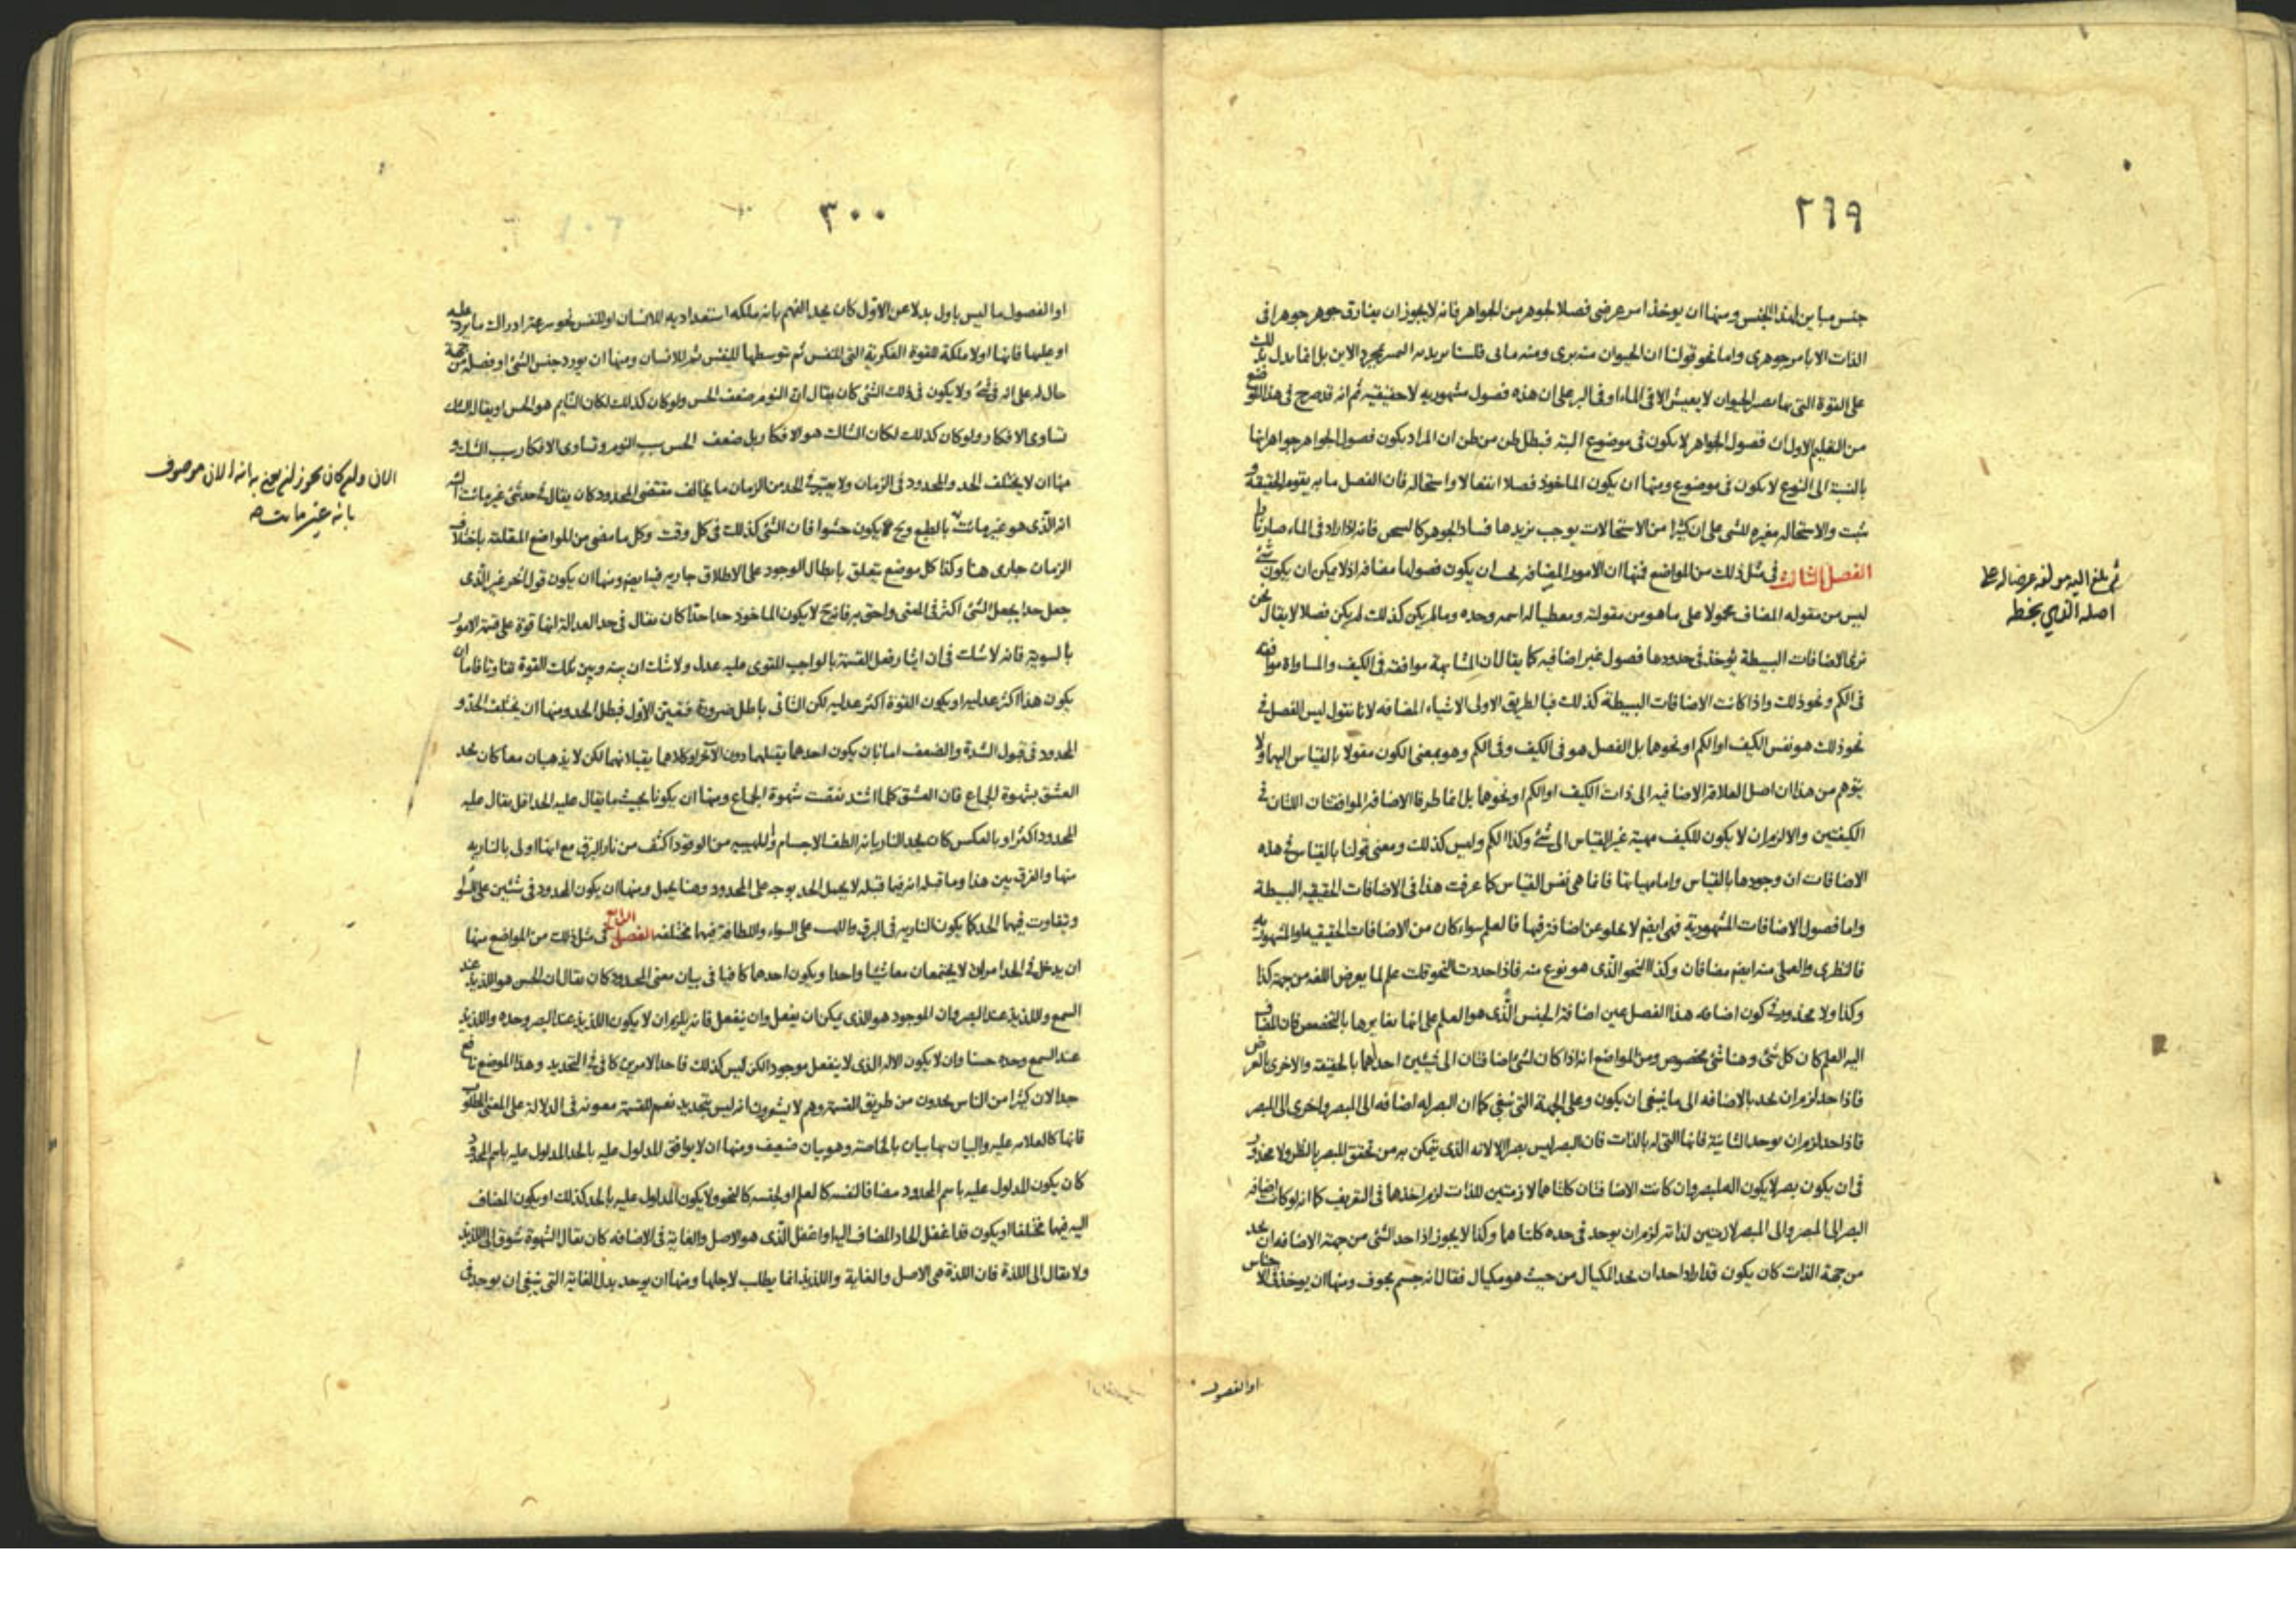 ٢٩٩
جنس مباين لهذا الجنس ومنها ان يوخذ امر عرضى فصلا لجوهر من الجواهر فانه لا يجوز ان يفارق جوهر جوهرا فى
الذات الا بامر جوهرى واما نحو قولنا ان الحيوان منه برى ومنه مائى فلسنا نريد به مجرد الاين بل انما يدل بذلك
على القوة التى بها يصير الحيوان لا يعيش الا فى الماء او فى البر على ان هذه فصول مشهوريه لا حقيقيه ثم انه قد صرح فى هذا
من التعليم الاول ان فصول الجواهر لا يكون فى موضوع البته فبطل ظن من ظن ان المراد بكون فصول الجواهر جواهر انها
بالنسبة الى النوع لا يكون فى موضوع ومنها ان يكون الماخوذ فصلا انفعالا واستحالة فان الفصل ما به يقوم الحقيقة و
يثبت والاستحاله مغيره للشى على ان كثيرا من الاستحالات يوجب تزيدها فساد الجوهر فانه اذا زاد فى الماء صار
الفصل الثالث فى مثل ذلك من المواضع فمنها ان الامور المضافه يجب ان يكون فصولها مضافه اذ لا يمكن ان يكون شئ
ليس من مقوله المضاف محمولا على ما هو من مقولته ومعطيا له اسمه وحده وما لم يكن كذلك لم يكن فصلا لا يقال نحن
نرى الاضافات البسيطة يوخذ فى حدودها فصول غير اضافيه كما يقال ان المشابهة موافقه فى الكيف والمساواة موافقه
فى الكم ونحو ذلك واذا كانت الاضافات البسيطة كذلك فبالطريق الاولى الاشياء المضافه لانا نقول ليس الفصل فى
نحو ذلك هو نفس الكيف او الكم او نحوها بل الفصل هو فى الكيف وفى الكم وهو بمعنى الكون مقولا بالقياس اليهما ولا
يتوهم من هذا ان اصل العلاقه الاضافيه الى ذات الكيف او الكم او نحوها بل انما طرفا الاضافه الموافقتان اللتان فى
الكيفتين والا لزم ان لا يكون للكيف مهية غير القياس الى شئ وكذا الكم وليس كذلك ومعنى قولنا بالقياس فى هذه
الاضافات ان وجودها بالقياس واما مهياتها فانما هى نفس القياس كما عرفت هذا فى الاضافات الحقيقيه البسيطة
واما فصول الاضافات المشهورية فهى ايضم لا يخلو عن اضافة فيها فالعلم سواء كان من الاضافات الحقيقيه او المشهوريه
فالنظرى والعملى منه ايضم مضافان وكذا النحو الذى هو نوع منه فاذا حددت النحو قلت علم لما يعرض اللغه من جهة كذا
وكذا ولا محذور فى كون اضافه هذا الفصل عين اضافة الجنس الذى هو العلم على انها تغايرها بالتخصص فان المضاف
اليه العلم كان كل شئ وهنا شئ مخصوص ومن المواضع انه اذا كان لشئ اضافتان الى شيئين احدهما بالحقيقه والاخرى بالعرض
فاذا حد لزم ان يحد بالاضافه الى ما ينبغى ان يكون وعلى الجهة التى ينبغى كما ان البصر له اضافه الى المبصر واخرى الى المبصر
فاذا حد لزم ان يوخد الثانية فانها التى له بالذات فان البصر ليس بصرا الا لانه الذى يتمكن به من تحقق المبصر بالنظر ولا محذور
فى ان يكون بصر لا يكون اله لمبصر وان كانت الاضافتان كلتاهما لازمتين للذات لزم اخذها فى التعريف كما انه لو كانت اضافه
البصر الى المبصر والى المبصر لازمتين لذاته لزم ان يوخد فى حده كلتاهما وكذا لا يجوز اذا حد الشئ من جهة الاضافه ان يحد
من جهة الذات كان يكون قد اراد احد ان يحد المكيال من حيث هو مكيال فقال انه جسم مجوف ومنها ان يوخذ فى الاجناس
او الفصول
ثم بلغ اليه مولفه عرضا له على
اصله الذى بخطه
٣٠٠
او الفصول ما ليس باول بدلا عن الاول كان يحد الفهم بانه ملكه استعداديه للانسان او للنفس نحو سرعة ادراك ما يرد عليه
او عليها فانها اولا ملكة للقوة الفكرية التى للنفس ثم بتوسطها للنفس ثم للانسان ومنها ان يورد جنس الشئ او فصله من جهة
حال له على انه فى شئ ولا يكون فى ذلك الشئ كان يقال ان النوم ضعف الحس ولو كان كذلك لكان النايم هو الحس او يقال الشك
تساوى الافكار ولو كان كذلك لكان الشاك هو الافكار بل ضعف الحس سبب النوم وتساوى الافكار سبب الشك و
منها ان لا يختلف الحد والمحدود فى الزمان ولا يعتبر فى الحد من الزمان ما يخالف مقتضى المحدود كان يقال فى حد شئ غير مائت
انه الذى هو غير مائت بالطبع وح لا يكون حشوا فان الشئ كذلك فى كل وقت وكل ما مضى من المواضع المتعلقه باختلاف
الزمان جارى هنا وكذا كل موضع يتعلق بابطال الوجود على الاطلاق جاريه فيه ايضم ومنها ان يكون قول آخر غير الذى
جعل حدا يجعل الشئ اكثر فى المعنى واحق به فانه ح لا يكون الماخوذ حدا حدا كان يقال فى حد العدالة انها قوة على قسمة الامور
بالسوية فانه لا شك فى ان ايثار فعل القسمة بالواجب المقوى عليه عدل ولا شك ان بينه وبين تلك القوة تفاوتا فاما ان
يكون هذا اكثر عدليه او يكون القوة اكثر عدليه لكن الثانى باطل ضرورة فتعين الاول فبطل الحد ومنها ان يختلف الحد و
المحدود فى قبول الشدة والضعف اما بان يكون احدهما يقبلهما دون الآخر او كلاهما يقبلانهما لكن لا يذهبان معا كان يحد
العشق بشهوة الجماع فان العشق كلما اشتد نقصت شهوة الجماع ومنها ان يكونا بحيث ما يقال عليه الحد اقل مما يقال عليه
المحدود اكثر او بالعكس كان يحد النار بانه الطف الاجسام واللهيب من الوقود اكثف من نار البرق مع انها اولى بالناريه
منها والفرق بين هذا وما قبله انه فيما قبله لا يحمل الحد بوجه على المحدود وهنا يحمل ومنها ان يكون المحدود فى شيئين على السواء
وتفاوت فيهما الحد كما يكون الناريه فى البرق واللهب على السواء واللطافة فيهما مختلفه الفصل الرابع فى مثل ذلك من المواضع منها
ان يدخل فى الحد امران لا يجتمعان معا شيئا واحدا ويكون احدهما كافيا فى بيان معنى المحدود كان يقال ان الحسن هو اللذيذ عند
السمع واللذيذ عند البصر وان الموجود هو الذى يمكن ان يفعل وان ينفعل فانه يلزم ان لا يكون اللذيذ عند البصر وحده واللذيذ
عند السمع وحده حسنا وان لا يكون الاله الذى لا ينفعل موجودا لكن ليس كذلك فاحد الامرين كافى فى التحديد وهذا الموضع نافع
جدا لان كثيرا من الناس يحدون من طريق القسمة وهم لا يشعرون انه ليس بتحديد نعم للقسمة معونه فى الدلالة على المعنى المطلوب
فانها كالعلامه عليه والبيان بها بيان بالخاصة وهو بيان ضعيف ومنها ان لا يوافق المدلول عليه بالحد المدلول عليه باسم المحدود
كان يكون المدلول عليه باسم المحدود مضافا لنفسه كالعلم او لجنسه كالنحو ولا يكون المدلول عليه بالحد كذلك او يكون المضاف
اليه فيهما مختلفا او يكون قد اغفل الحاد المضاف اليه او اغفل الذى هو الاصل والغاية فى الاضافه كان يقال الشهوة شوق الى اللذيذ
ولا يقال الى اللذة فان اللذة هى الاصل والغاية واللذيذ انما يطلب لاجلها ومنها ان يوحد بدل الغاية التى ينبغى ان يوخد فى
الانى موصوف
بانه غير مائت